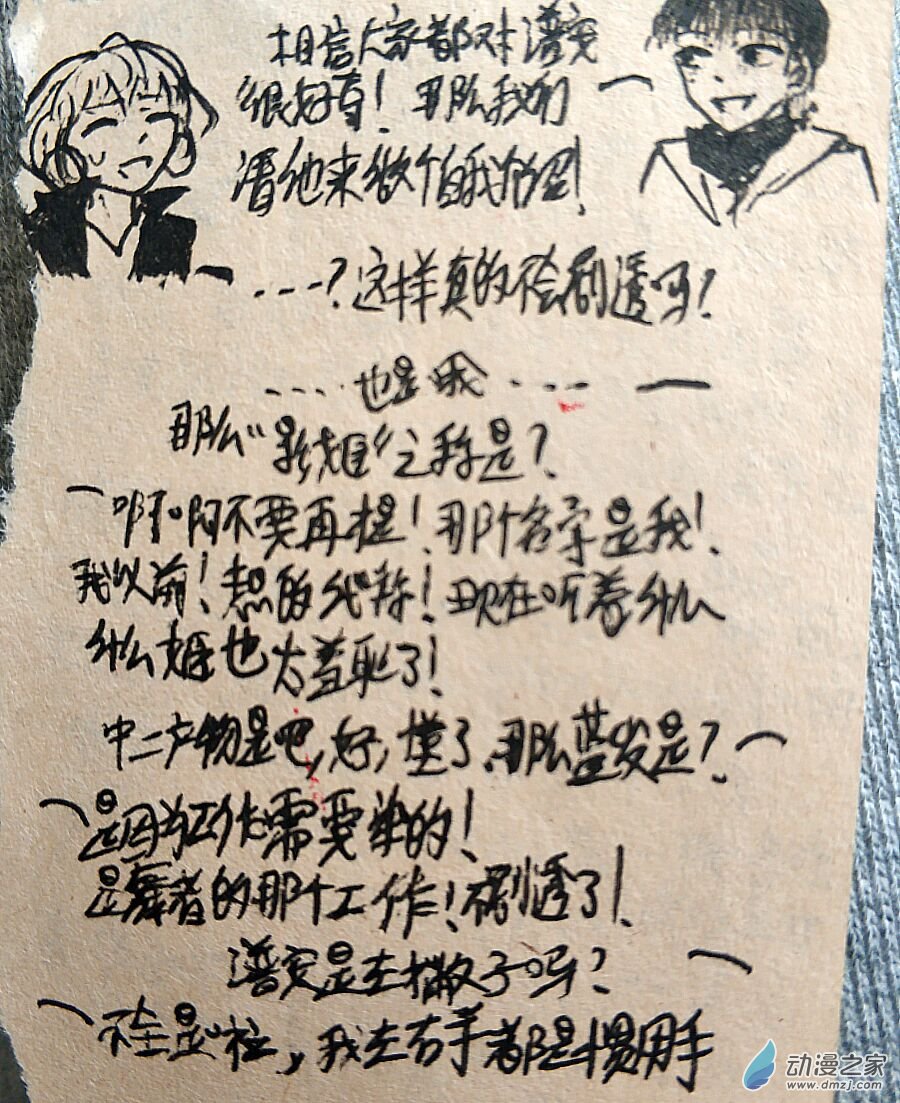 相信大家都对谱安
很好奇！那么我们
请他来做个自我介绍！
---？这样真的不会剧透吗？
....也是哦....
那么"影姬"之称是？
啊啊啊不要再提！那个名字是我！
我以前！想的代称！现在听着什么
什么姬也太羞耻了！
中二产物是吧，好，懂了，那么蓝发是？
是因为工作需要染的！
是舞者的那个工作！剧透了！
谱安是左撇子吗？
不全是啦，我左右手都是惯用手
动漫之家
www.dmzj.com